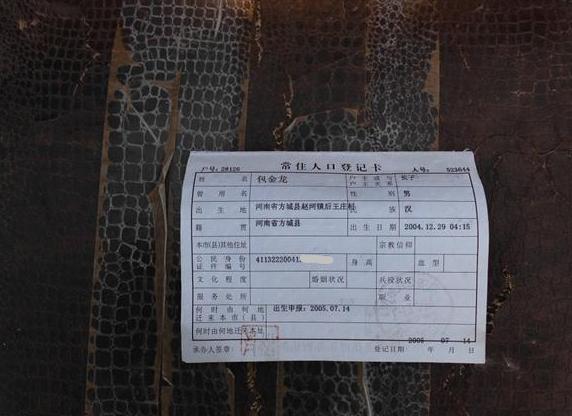 常住人口登记卡
户号: 28126 人号: 523644
姓名 包金龙 户主或与户主关系 长子
曾用名 性别 男
出生地 河南省方城县赵河镇后王庄村 民族 汉
籍贯 河南省方城县 出生日期 2004.12.29 04:15
本市(县)其他住址 宗教信仰
公民身份证件编号 41132220041 身高 血型
文化程度 婚姻状况 兵役状况
服务处所 职业
何时由何地迁来本市(县) 出生申报: 2005.07.14
何时由何地迁来本址
2005 07 14
承办人签章: 登记日期: 年 月 日